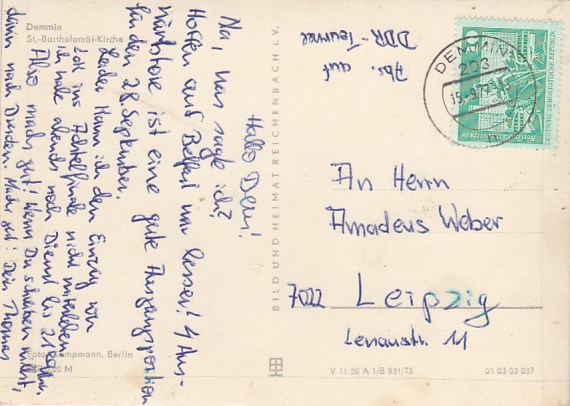 Demmin
St.-Bartholomäi-Kirche
Hallo Deni!
Na, was sagte ich?
Hoffen auf Belfast um besser! 4 Aus-
wärtstore ist eine gute Ausgangsposition
für den 28. September.
Leider kann ich den Einzug von
Lok ins Achtelfinale nicht miterleben
ich habe abends noch Dienst bis 21
Also machs gut! Wenn Du schreiben willst,
dann nach Dresden. Machs gut! Dein Thomas
Foto: Kampmann, Berlin
20 M
BILD UND HEIMAT REICHENBACH i. V.
Abs. auf
DDR-Tournee
DEMMIN
203
15.-9.77
10
DEUTSCHE DEMOKRATISCHE REPUBLIK
An Herrn
Amadeus Weber
7022 Leipzig
Lenaustr. 11
V 11 50 A 1/B 931/75
01 03 03 037